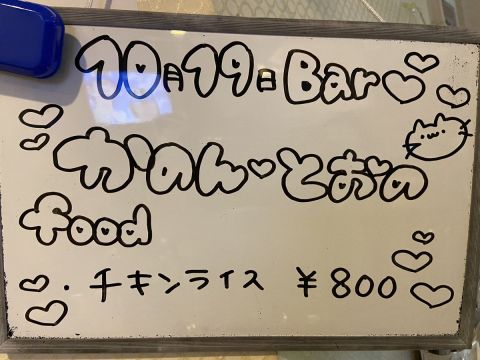 10月19日Bar♡
かのん♡とおの
food
・チキンライス ¥800